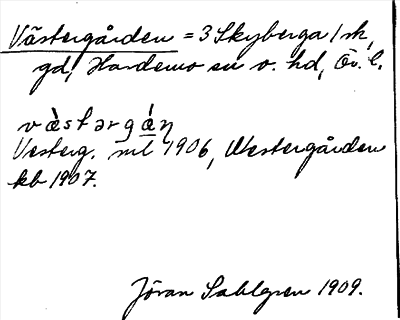 Västergården = 3 Skyberga 1 sk,
gd, Hardemo sn o. hd, Ör. l.
västərgǻṇ
Vesterg. ml 1906, Westergården
kb 1907.
Jöran Sahlgren 1909.